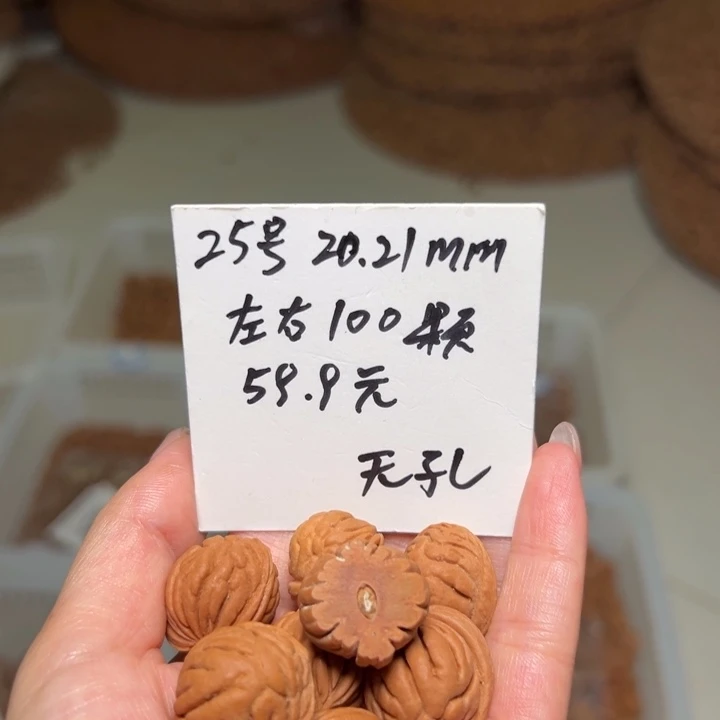 25号 20.21mm
左右100颗
59.9元
无孔